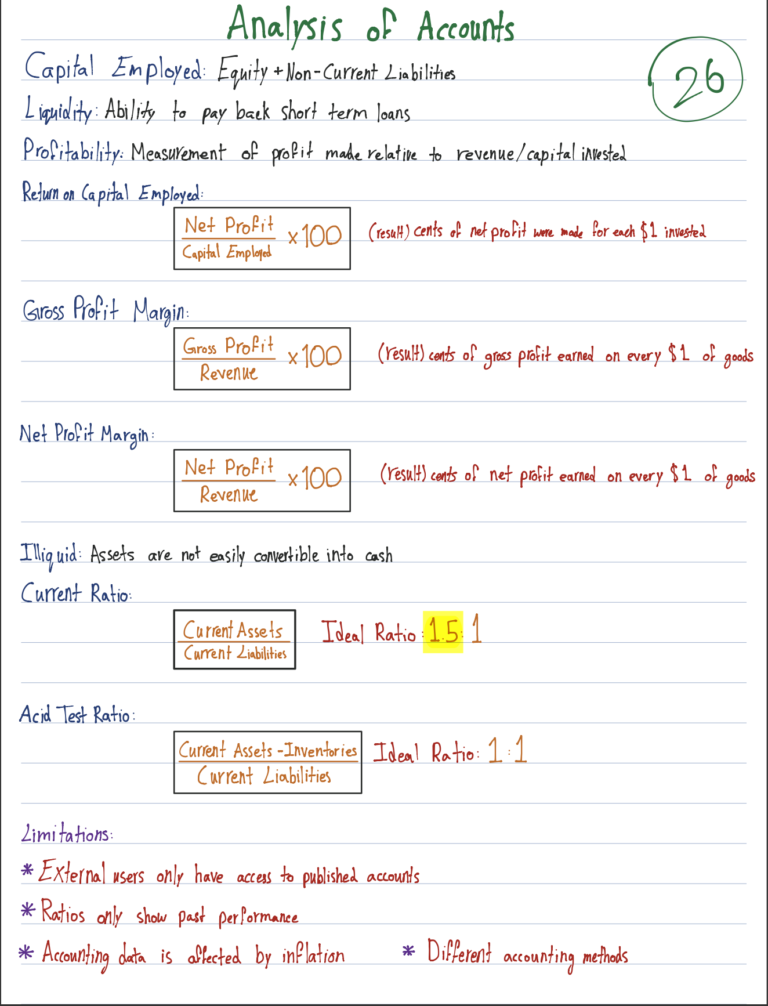 Analysis of Accounts
26
Capital Employed: Equity + Non-Current Liabilities
Liquidity: Ability to pay back short term loans
Profitability: Measurement of profit made relative to revenue/capital invested
Return on Capital Employed:
Net Profit
Capital Employed
×100
(result) cents of net profit were made for each $1 invested
Gross Profit Margin:
Gross Profit
Revenue
×100
(result) cents of gross profit earned on every $1 of goods
Net Profit Margin:
Net Profit
Revenue
×100
(result) cents of net profit earned on every $1 of goods
Illiquid: Assets are not easily convertible into cash
Current Ratio:
Current Assets
Current Liabilities
Ideal Ratio: 1.5:1
Acid Test Ratio:
Current Assets - Inventories
Current Liabilities
Ideal Ratio: 1:1
Limitations:
* External users only have access to published accounts
* Ratios only show past performance
* Accounting data is affected by inflation
* Different accounting methods